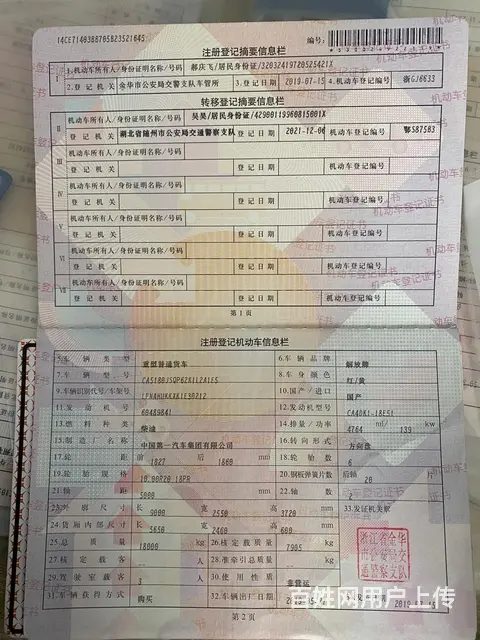 注册登记摘要信息栏
编号:
1.机动车所有人/身份证明名称/号码 郝庆飞/居民身份证/
2.登记机关 金华市公安局交警支队车管所 3.登记日期 2019-07-15 4.机动车登记编号 浙GJ6633
转移登记摘要信息栏
机动车所有人/身份证明名称/号码 吴昊/居民身份证/
Ⅱ 登记机关 湖北省随州市公安局交通警察支队 登记日期 2021-12-06 机动车登记编号 鄂S87583
Ⅲ 机动车所有人/身份证明名称/号码
登记机关 登记日期 机动车登记编号
Ⅳ 机动车所有人/身份证明名称/号码
登记机关 登记日期 机动车登记编号
Ⅴ 机动车所有人/身份证明名称/号码
登记机关 登记日期 机动车登记编号
Ⅵ 机动车所有人/身份证明名称/号码
登记机关 登记日期 机动车登记编号
Ⅶ 机动车所有人/身份证明名称/号码
登记机关 登记日期 机动车登记编号
第1页
注册登记机动车信息栏
5.车辆类型 重型普通货车 6.车辆品牌 解放牌
7.车辆型号 8.车身颜色 红/黄
9.车辆识别代号/车架号 10.国产/进口 国产
11.发动机号 12.发动机型号
13.燃料种类 柴油 14.排量/功率 4764 ml/ 139 kw
15.制造厂名称 中国第一汽车集团有限公司 16.转向形式 方向盘
17.轮距 前 1827 后 1860 mm 18.轮胎数 6
19.轮胎规格 10.00R20 18PR 20.钢板弹簧片数 后轴 片
21.轴距 5000 mm 22.轴数
23.外廓尺寸 9000 2550 3720 mm 33.发证机关章
24.货厢内部尺寸 5650 2460 600 mm
25.总质量 18000 kg 26.核定载质量 7905 kg
27.核定载客 -- 人 28.准牵引总质量 -- kg
29.驾驶室载客 3 人 30.使用性质 非营运
31.车辆获得方式 购买 32.车辆出厂日期
浙江省金华
市公安局交
通警察支队
第2页
百姓网用户上传